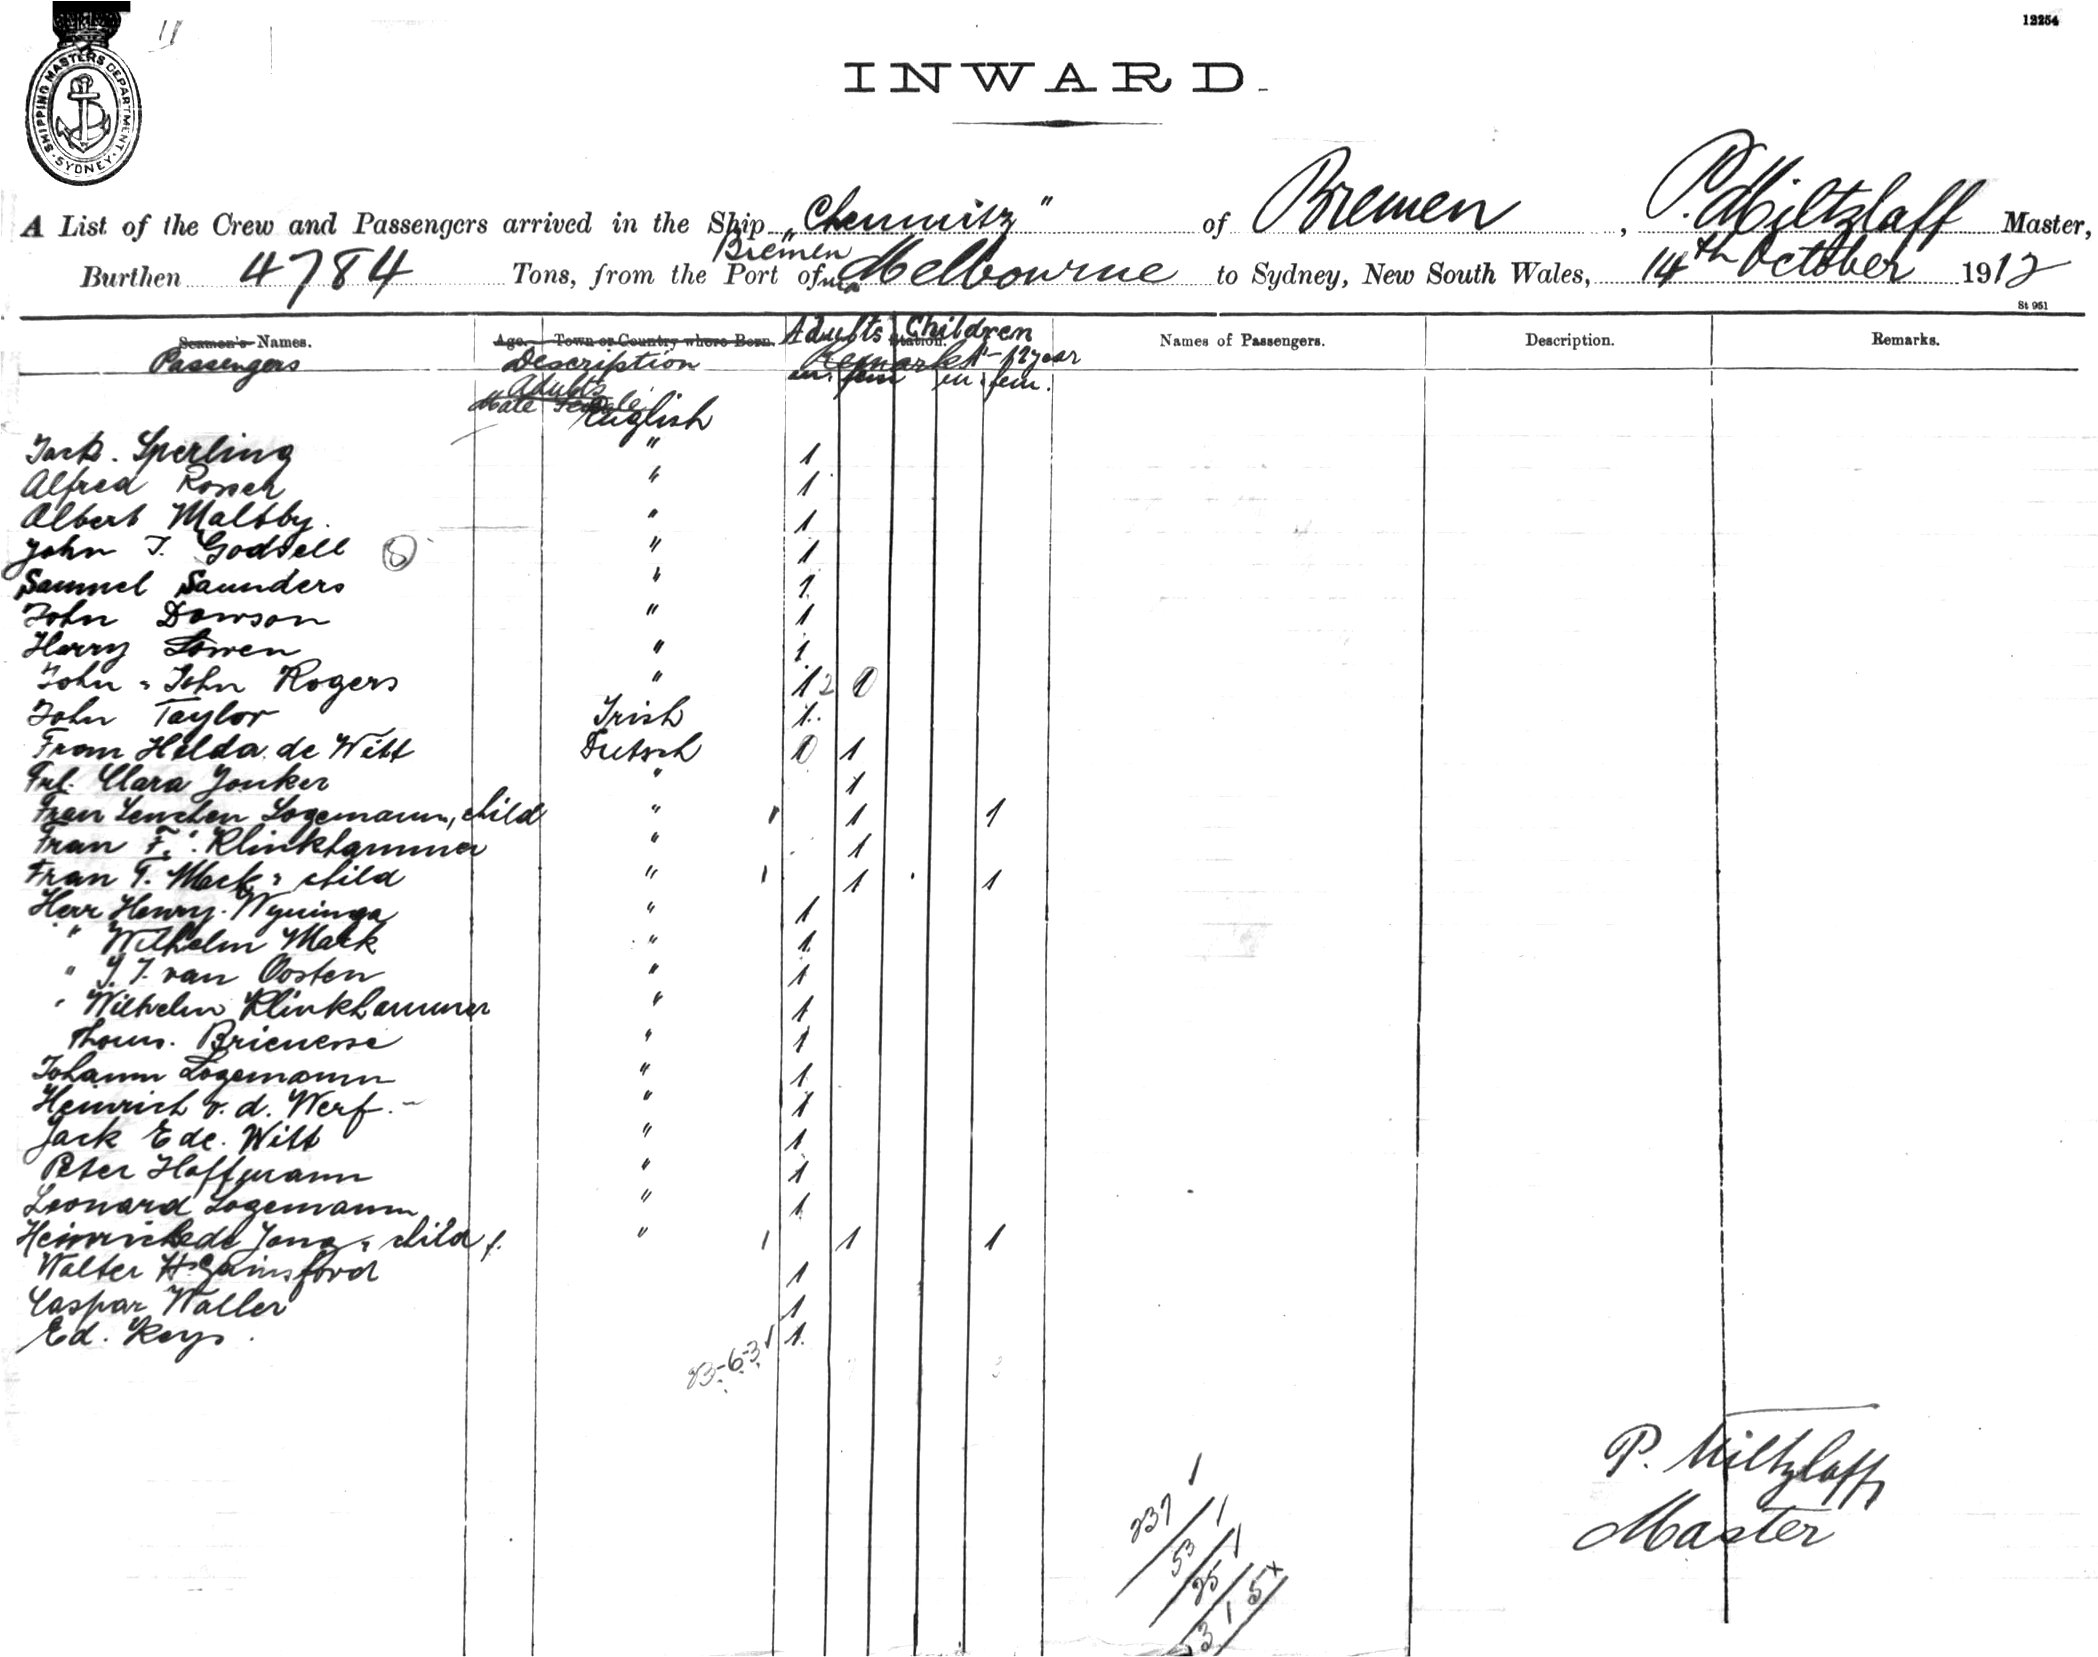 11
12254
SHIPPING MASTERS DEPARTMENT. SYDNEY
INWARD.
A List of the Crew and Passengers arrived in the Ship "Chemnitz" of Bremen, P. Miltzlaff Master,
Bremen
Burthen 4784 Tons, from the Port of via Melbourne to Sydney, New South Wales, 14th October 1912
St 951
Seamen's Names. Age. Town or Country where Born. Adults Station. Children Names of Passengers. Description. Remarks.
Passengers Description Remarks 1-12 year
Adults m. fem m. fem.
Male Female
English
Jack. Sperling " 1
Alfred Rossch " 1
Albert Maltby. " 1
John T. Godsell 8 " 1
Samuel Saunders " 1.
John Dowson " 1
Harry Lowen " 1
John " John Rogers " 1 2 0
John Taylor Irish 1.
Frau Helda de Witt Dutsch 0 1
Frl. Clara Jonker " 1
Frau Lenchen Logemann, child " 1 1 1
Frau F. Klinkhammer " 1
Frau T. Mack " child " 1 1 1
Herr Henry. Wyninga " 1
" Wilhelm Mack " 1
" J. J. van Oosten " 1
" Wilhelm Klinkhammer " 1
Thoms. Brienesse " 1
Johann Logemann " 1
Heinrich v. d. Werf. - " 1
Jack E de. Witt " 1
Peter Hoffmann " 1
Leonard Logemann " 1
Heinrich de Jong " child f. " 1 1 1
Walter H. Gainsford 1
Caspar Waller 1
Ed. Keys. 1.
23-6-3
3
237
53
25
3 1 5 x
P. Miltzlaff
Master